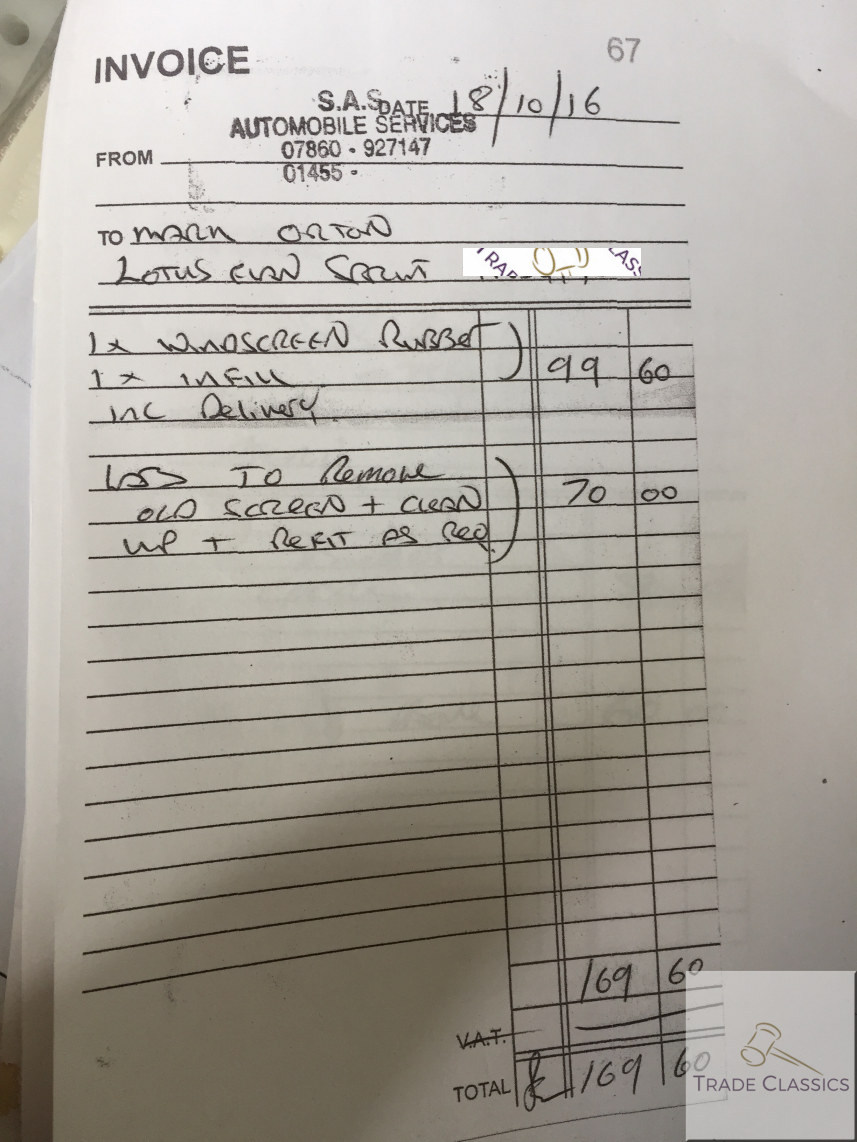 67
INVOICE
S.A.S DATE 18/10/16
AUTOMOBILE SERVICES
07860 - 927147
FROM
01455 -
TO MARK ORTON
LOTUS ELAN SPRINT
1 x WINDSCREEN RUBBER
1 x INFILL 99 60
INC Delivery
TO Remove
OLD SCREEN + CLEAN 70 00
UP + REFIT AS REQ
169 60
V.A.T.
TOTAL £ 169 60
TRADE CLASSICS